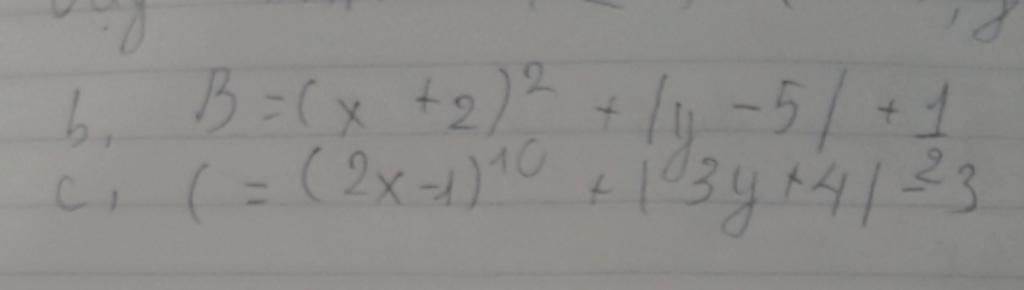 b, B = (x + 2)² + |y - 5| + 1/2
c, C = (2x - 1)¹⁰ + |3y + 4| - 3